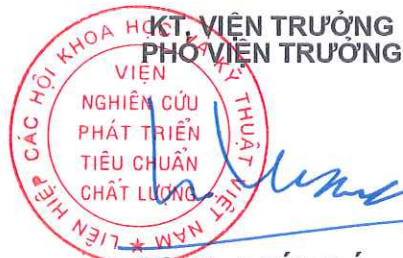 KT. VIỆN TRƯỞNG
PHÓ VIỆN TRƯỞNG
LIÊN HIỆP CÁC HỘI KHOA HỌC VÀ KỸ THUẬT VIỆT NAM
VIỆN
NGHIÊN CỨU
PHÁT TRIỂN
TIÊU CHUẨN
CHẤT LƯỢNG